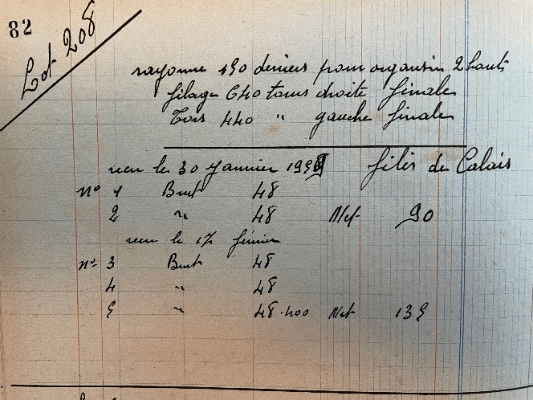 82
Lot 208
rayonne 150 deniers pour organsin 2 bouts
filage 640 tours droite finale
Tors 440 " gauche finale
reçu le 30 Janvier 195 filés de Calais
N° 1 Brut 48
2 " 48 Net 90
reçu le 17 février
N° 3 Brut 48
4 " 48
5 " 48.400 Net 135